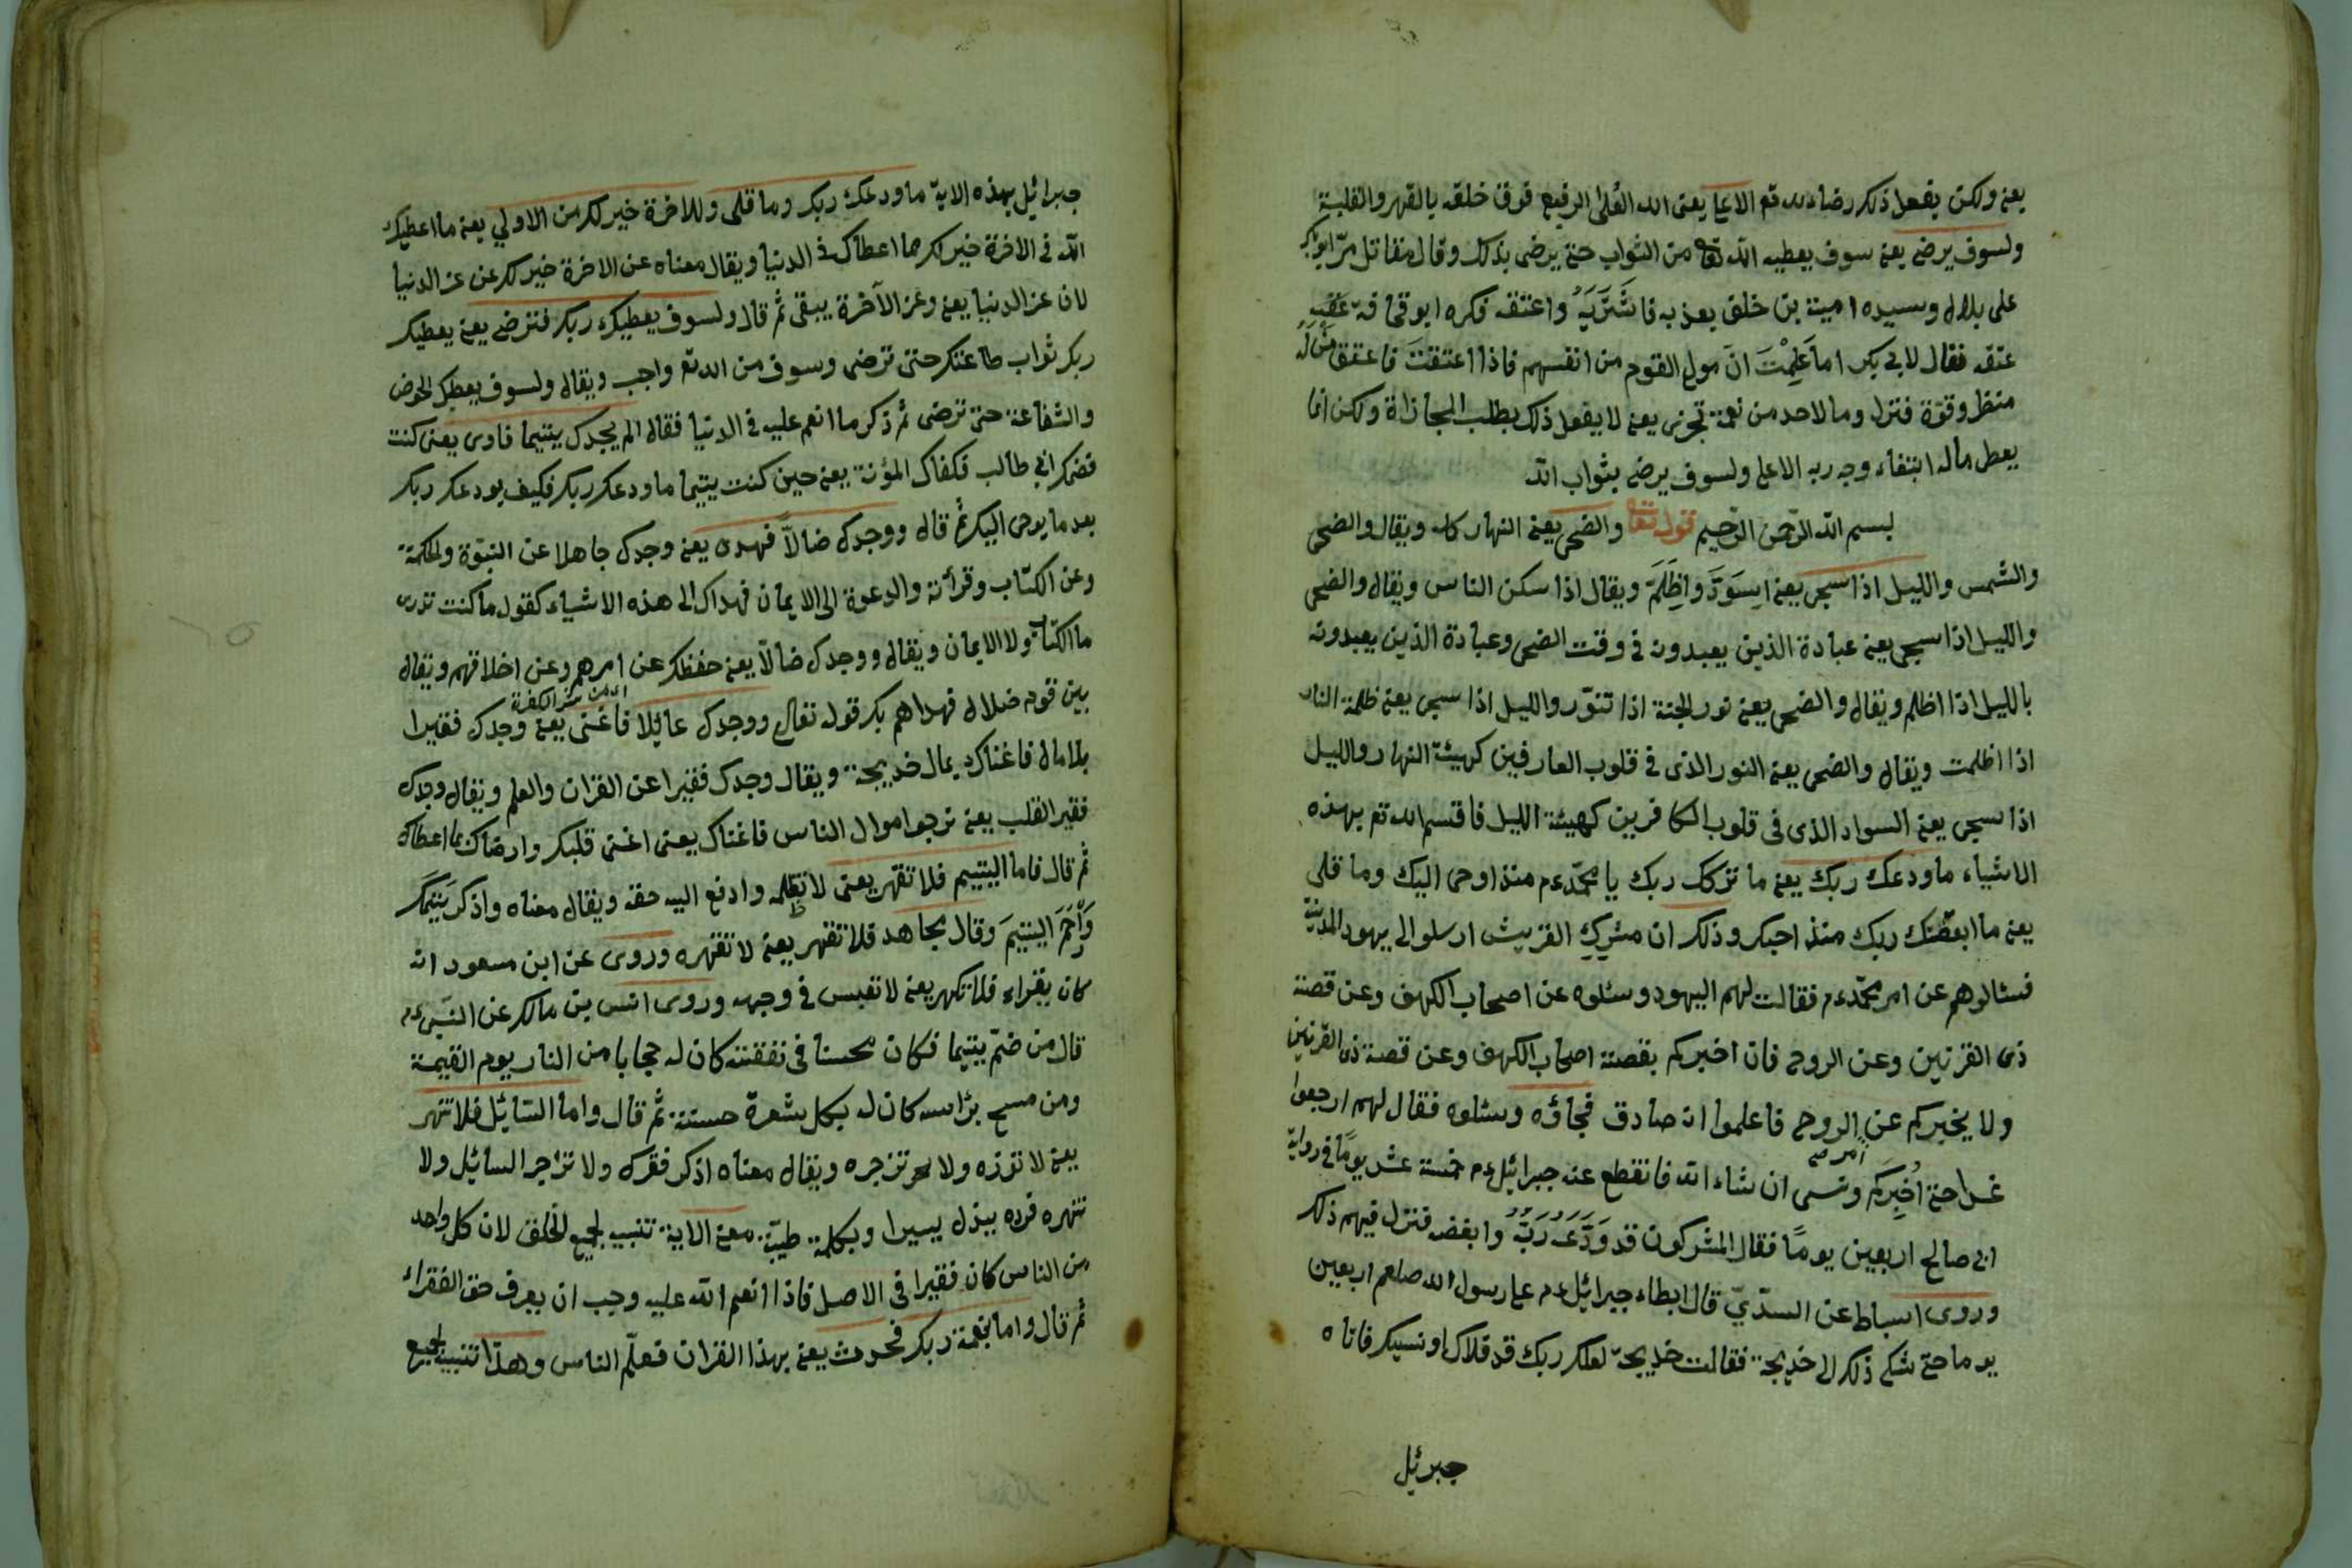 يعني ولكن يفعل ذلك رضاء لله تع الاعلى يعني الله العلى الرفيع فوق خلقه بالقهر والغلبة
ولسوف يرضى يعني سوف يعطيه الله تعا من الثواب حتى يرضى بذلك وقال مقاتل مرّ ابو بكر
على بلال وسيده امية بن خلف يعذبه فاشتريه واعتقه فكره ابو قحافة عَقبِهِ
عتقه فقال لابي بكر اما عَلِمْتَ انَ مولى القوم من انفسهم فاذا اعتقتَ فاعتق من له
منظر وقوّة فنزل وما لاحد من نعمة تجزى يعني لا يفعل ذلك بطلب المجازاة ولكن انما
يعطى ماله ابتغاء وجه ربه الاعلى ولسوف يرضى بثواب الله
بسم الله الرّحمن الرّحيم قوله تعا والضحى يعني النهار كله ويقال والضحى
والشمس والليل اذا سجى يعني اِسوَدَّ واظلم ويقال اذا سكن الناس ويقال والضحى
والليل اذا سجى يعني عبادة الذين يعبدونه في وقت الضحى وعبادة الذين يعبدونه
بالليل اذا اظلم ويقال والضحى يعني نور الجنة اذا تنوّر والليل اذا سجى يعني ظلمة النار
اذا اظلمت ويقال والضحى يعني النور الذى في قلوب العارفين كهيئة النهار والليل
اذا سجى يعني السواد الذى فى قلوب الكافرين كهيئة الليل فاقسم الله تع بهذه
الاشياء ما ودعك ربك يعني ما تركك ربك يا محمّد عم منذ اوحى اليك وما قلى
يعني ما ابغضك ربك منذ احبك وذلك ان مشركِ القريش ارسلوا الى يهود المدينة
فسئالوهم عن امر محمّد عم فقالت لهم اليهود وسئلوه عن اصحاب الكهف وعن قصة
ذى القرنين وعن الروح فان اخبركم بقصة اصحاب الكهف وعن قصة ذى القرنين
ولا يخبركم عن امر الروح فاعلموا انه صادق فجاؤه وسئلوه فقال لهم ارجعوا
غدا حتى اُخبِرَكم ونسى ان شاء الله فانقطع عنه جبرائيل عم خمسة عشر يومًا في رواية
ابى صالح اربعين يومًا فقال المشركون قد وَدَّعَهُ رَبُّهُ وابغضه فنزل فيهم ذلك
وروى اسباط عن السدّيّ قال ابطاء جبرائيل عم على رسول الله صلعم اربعين
يوما حتى شكى ذلك الى خديجة فقالت خديجة لعلك ربك قد قلاك او نسيك فاتاه
جبرئيل
جبرائيل بهذه الاية ما ودعك ربك وما قلى وللاخرة خير لك من الاولى يعني ما اعطيك
الله في الاخرة خير لك مما اعطاك في الدنيا ويقال معناه عن الاخرة خير لك من عز الدنيا
لان عز الدنيا يعني وعز الآخرة يبقى ثم قال ولسوف يعطيك ربك فترضى يعني يعطيك
ربك ثواب طاعتك حتى ترضى وسوف من الله تع واجب ويقال ولسوف يعطيك الحوض
والشفاعة حتى ترضى ثم ذكر ما انعم عليه في الدنيا فقال الم يجدك يتيما فاوى يعنى كنت
فضمك ابى طالب فكفاك المؤنة يعني حين كنت يتيما ما ودعك ربك فكيف يودعك ربك
بعد ما يوحى اليك ثم قال ووجدك ضالّا فهدى يعني وجدك جاهلا عن النبوّة والحكمة
وعن الكتاب وقرأته والدعوة الى الايمان فهداك الى هذه الاشياء كقوله ما كنت تدرى
ما الكتاب ولا الايمان ويقال ووجدك ضالّا يعني حفظك عن امرهم وعن اخلاقهم ويقال
بين قوم ضلال فهداهم بك قوله تعالى ووجدك عائلا فاغنى يعني وجدك فقيرا
بلا مال فاغناك بمال خديجة ويقال وجدك فقيرا عن القران والعلم ويقال وجدك
فقير القلب يعني ترجو اموال الناس فاغناك يعنى اغنى قلبك وارضاك بما اعطاك
ثم قال فاما اليتيم فلا تقهر يعنى لا تظلمه وادفع اليه حقه ويقال معناه واذكر يُتمَك
وَاْرحَمَ اليتيمَ وقال مجاهد فلا تقهر يعني لا تقهره وروى عن ابن مسعود انه
كان يقراء فلا تكهر يعني لا تعبس في وجهه وروى انس بن مالك عن النبى عم
قال من ضمّ يتيما فكان محسنا فى نفقته كان له حجابا من النار يوم القيمة
ومن مسح برأسه كان له بكل شعرة حسنة ثم قال واما السّائيل فلا تنهر
يعني لا تردّه ولا تزجره ويقال معناه اذكر فقرك ولا تزاجر السائيل ولا
تنهره فرده ببذل يسيرا وبكلمة طيّبة معنى الاية تنبيه لجميع الخلق لان كل واحد
من الناس كان فقيرا فى الاصل فاذا انعم الله عليه وجب ان يعرف حق الفقراء
ثم قال واما بنعمة ربك فحدث يعني بهذا القران فعلّم الناس وهذا تنبيه لجميع